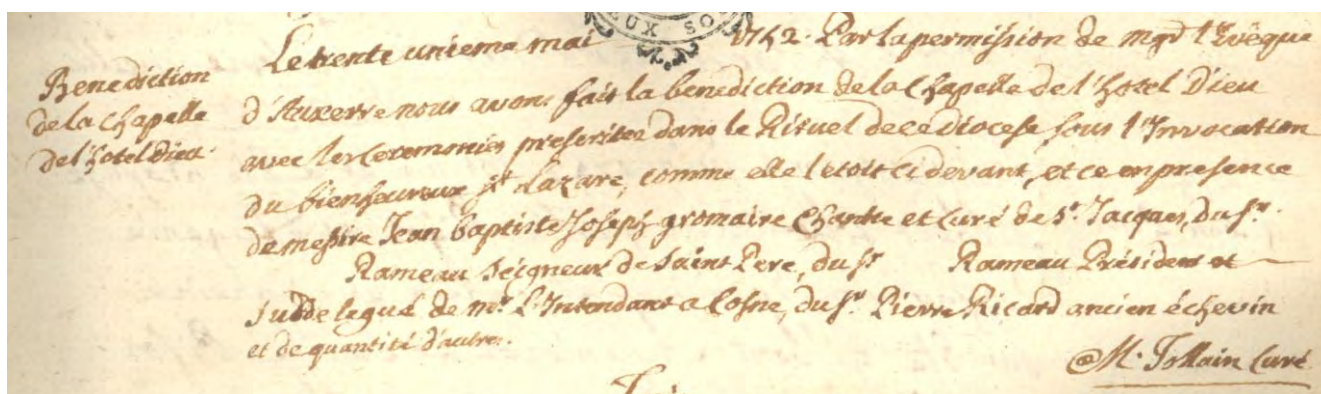 Benediction
de la Chapelle
de l'hotel Dieu.
Le trente unieme mai 1742. Par la permission de mgr l'Evêque
d'Auxerre nous avons fait la benediction de la Chapelle de l'hotel Dieu
avec les Ceremonies prescrites dans le Rituel de ce Diocese sous l'Invocation
du bienheureux st Lazare, comme elle l'etoit ci devant, et ce en presence
de messire Jean baptiste Joseph gromaire Chantre et Curé de St. Jacques, du sr.
Rameau Seigneur de Saint Pere, du sr Rameau Président et
subdelegué de mr. l'Intendant a Cosne, du sr. Pierre Ricard ancien échevin
et de quantité d'autres.
M. Tollain Curé